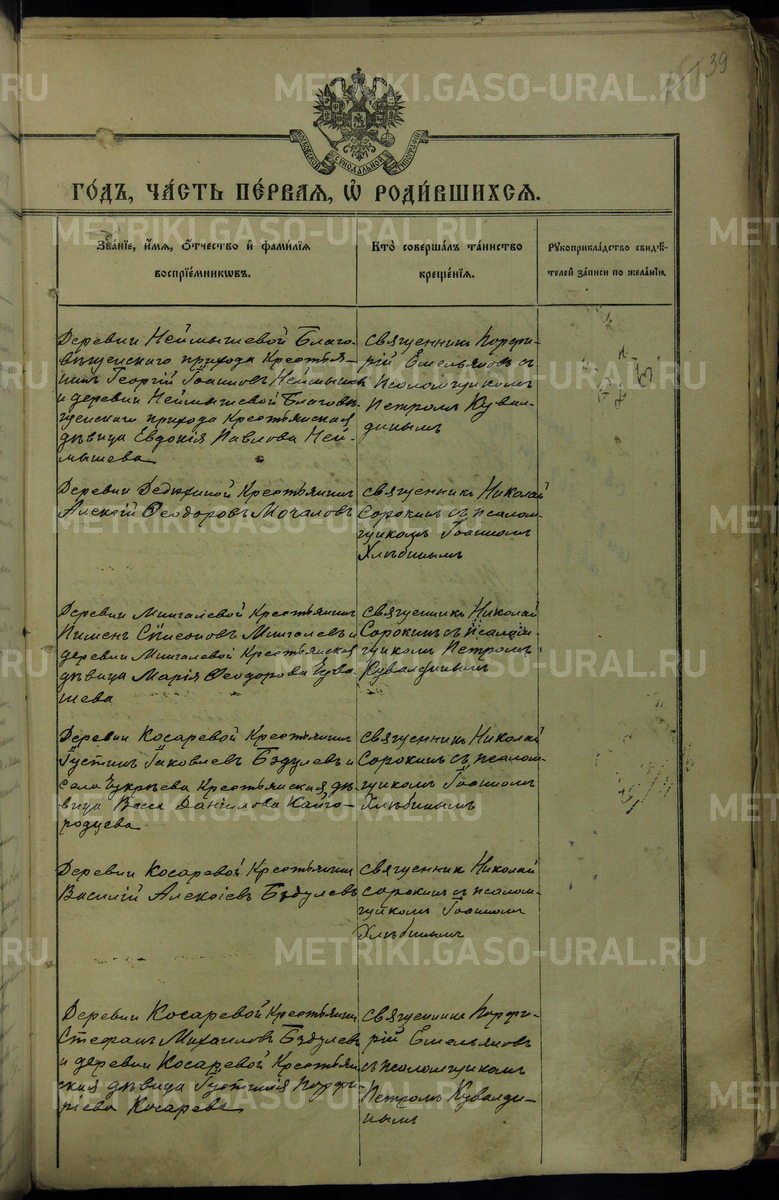 39
МОСКОВСКОЙ СѴНОДАЛЬНОЙ ТИПОГРАФІИ
ГОДЪ, ЧАСТЬ ПЕРВАЯ, Ѿ РОДИВШИХСЯ.
Званіе, имя, отчество и фамилія
воспріемникѡвъ.
Кто совершалъ таинство
крещенія.
Рукоприкладство свидѣ-
телей записи по желанію.
Деревни Неймышевой Благо-
вѣщенскаго прихода Крестья-
нинъ Георгій Іоанновъ Неймышевъ
и деревни Неймышевой Благовѣ-
щенскаго прихода Крестьянская
дѣвица Евдокія Павлова Ней-
мышева
Священникъ Порфи-
рій Емельяновъ съ
Псаломщикомъ
Петромъ Кувал-
динымъ
Деревни Дедюхиной Крестьянинъ
Алексій Ѳеодоровъ Мочаловъ
Священникъ Николай
Сорокинъ съ псалом-
щикомъ Іоанномъ
Хлѣбинымъ
Деревни Мингалевой Крестьянинъ
Пименъ Сѷмеоновъ Мингалевъ и
деревни Мингалевой Крестьянская
дѣвица Марія Ѳеодорова Чува-
шева
Священникъ Николай
Сорокинъ съ Псалом-
щикомъ Петромъ
Кувалдинымъ
Деревни Косаревой Крестьянинъ
Іустинъ Іаковлевъ Бздулевъ и
села Чукрѣева Крестьянская дѣ-
вица Васса Даніилова Кайго-
родцева
Священникъ Николай
Сорокинъ съ псалом-
щикомъ Іоанномъ
Хлѣбинымъ
Деревни Косаревой Крестьянинъ
Василій Алексіевъ Бздулевъ
Священникъ Николай
Сорокинъ съ псалом-
щикомъ Іоанномъ
Хлѣбинымъ
Деревни Косаревой Крестьянинъ
Стефанъ Михаиловъ Бздулевъ
и деревни Косаревой Крестьян-
ская дѣвица Іустинія Порфи-
ріева Косарева
Священникъ Порфи-
рій Емельяновъ
съ псаломщикомъ
Петромъ Кувалди-
нымъ
METRIKI.GASO-URAL.RU